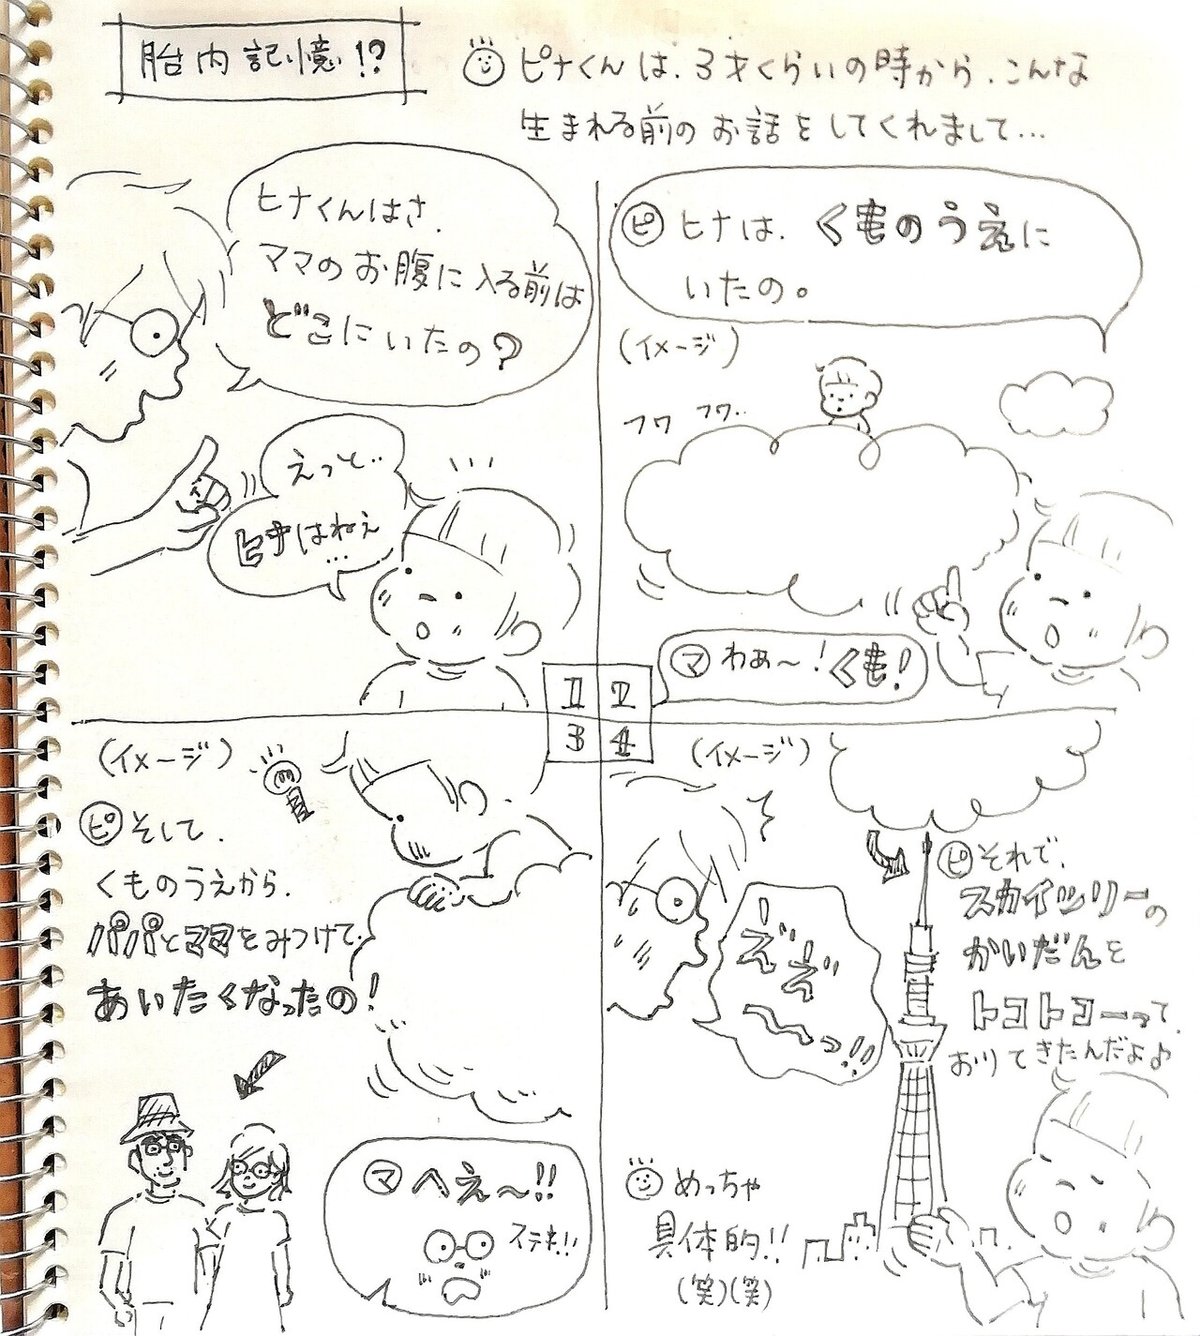 胎内記憶!?
ピナくんは、3才くらいの時から、こんな
生まれる前のお話をしてくれまして…
ヒナくんはさ、
ママのお腹に入る前は
どこにいたの?
えっと‥
ヒナはねぇ
…
ピ ヒナは、くものうえに
いたの。
(イメージ)
フワ フワ‥
マ わぁ〜!くも!
1 2
3 4
(イメージ)
ピ そして、
くものうえから、
パパとママをみつけて、
あいたくなったの!
マ へぇ〜!!
ステキ!!
(イメージ)
ピ それで、
スカイツリーの
かいだんを
トコトコーって、
おりてきたんだよ♪
えぇ
〜っ!!
めっちゃ
具体的!!
(笑)(笑)